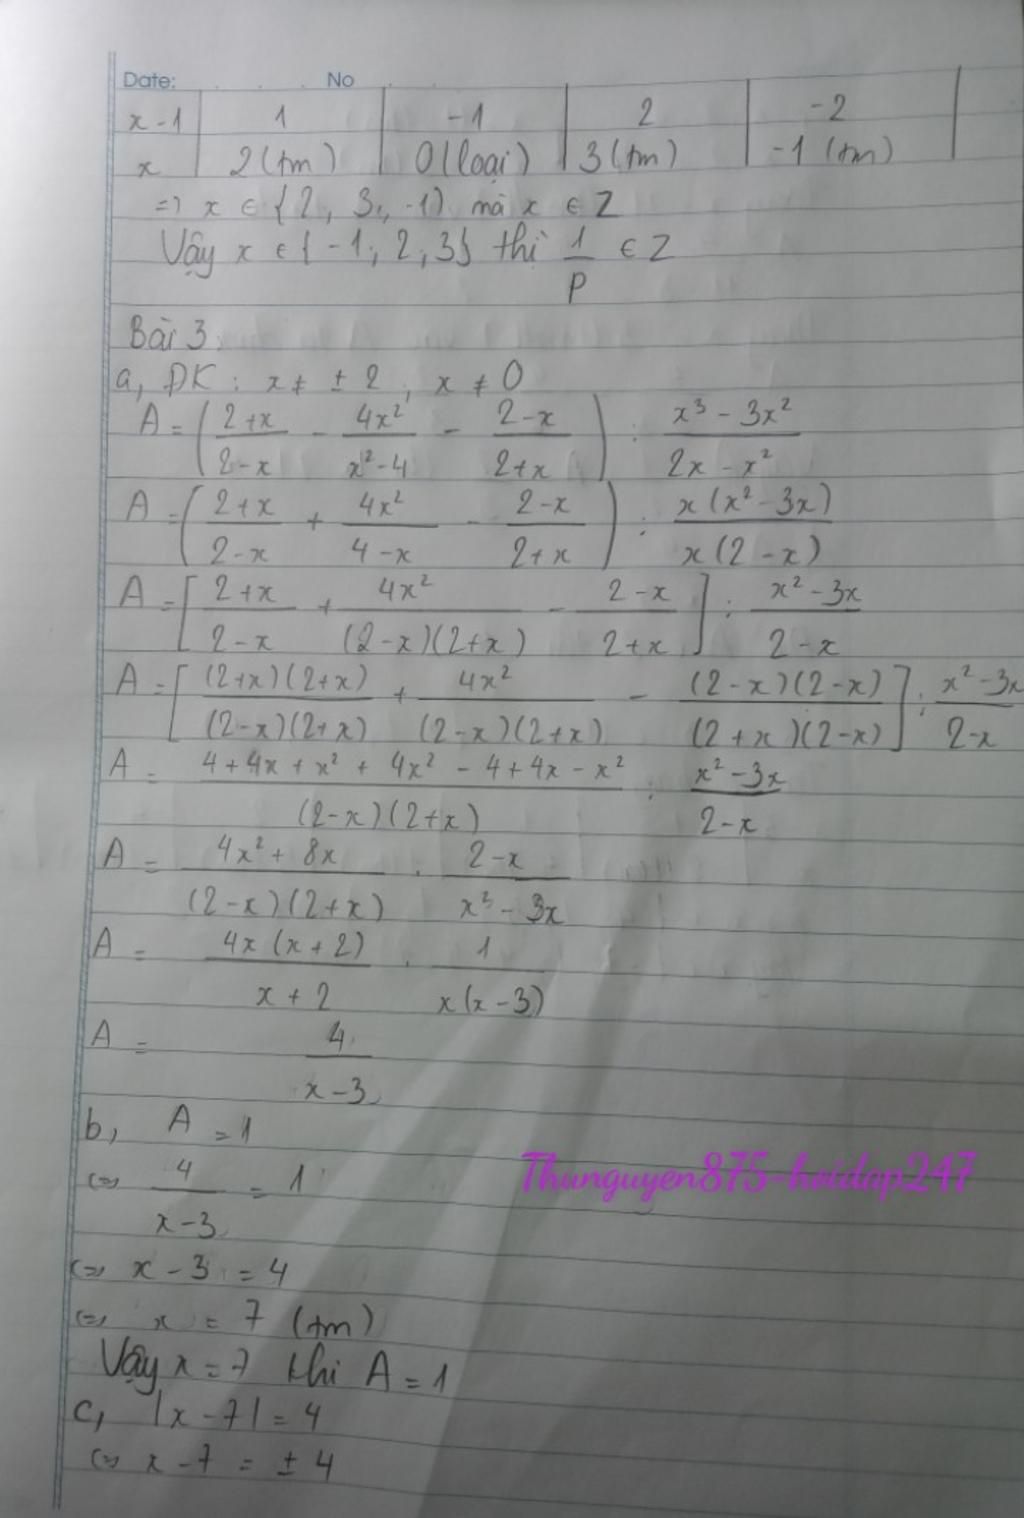 Date: No
x-1 | 1 | -1 | 2 | -2
x | 2(tm) | 0(loại) | 3(tm) | -1 (tm)
=> x ∈ {2, 3, -1} mà x ∈ Z
Vậy x ∈ {-1; 2, 3} thì 1/P ∈ Z
Bài 3
a, ĐK : x ≠ ± 2, x ≠ 0
A = ( (2+x)/(2-x) - 4x²/(x²-4) - (2-x)/(2+x) ) : (x³ - 3x²)/(2x - x²)
A = ( (2+x)/(2-x) + 4x²/(4-x) - (2-x)/(2+x) ) : x(x² - 3x)/x(2-x)
A = [ (2+x)/(2-x) + 4x²/(2-x)(2+x) - (2-x)/(2+x) ] : (x² - 3x)/(2-x)
A = [ (2+x)(2+x)/(2-x)(2+x) + 4x²/(2-x)(2+x) - (2-x)(2-x)/(2+x)(2-x) ] : (x² - 3x)/(2-x)
A = (4 + 4x + x² + 4x² - 4 + 4x - x²)/(2-x)(2+x) : (x² - 3x)/(2-x)
A = (4x² + 8x)/(2-x)(2+x) . (2-x)/(x² - 3x)
A = 4x(x+2)/(x+2) . 1/x(x-3)
A = 4/(x-3)
b, A = 1
<=> 4/(x-3) = 1
<=> x - 3 = 4
<=> x = 7 (tm)
Vậy x = 7 khi A = 1
c, |x - 7| = 4
<=> x - 7 = ± 4
Thunguyen875-hoidap247